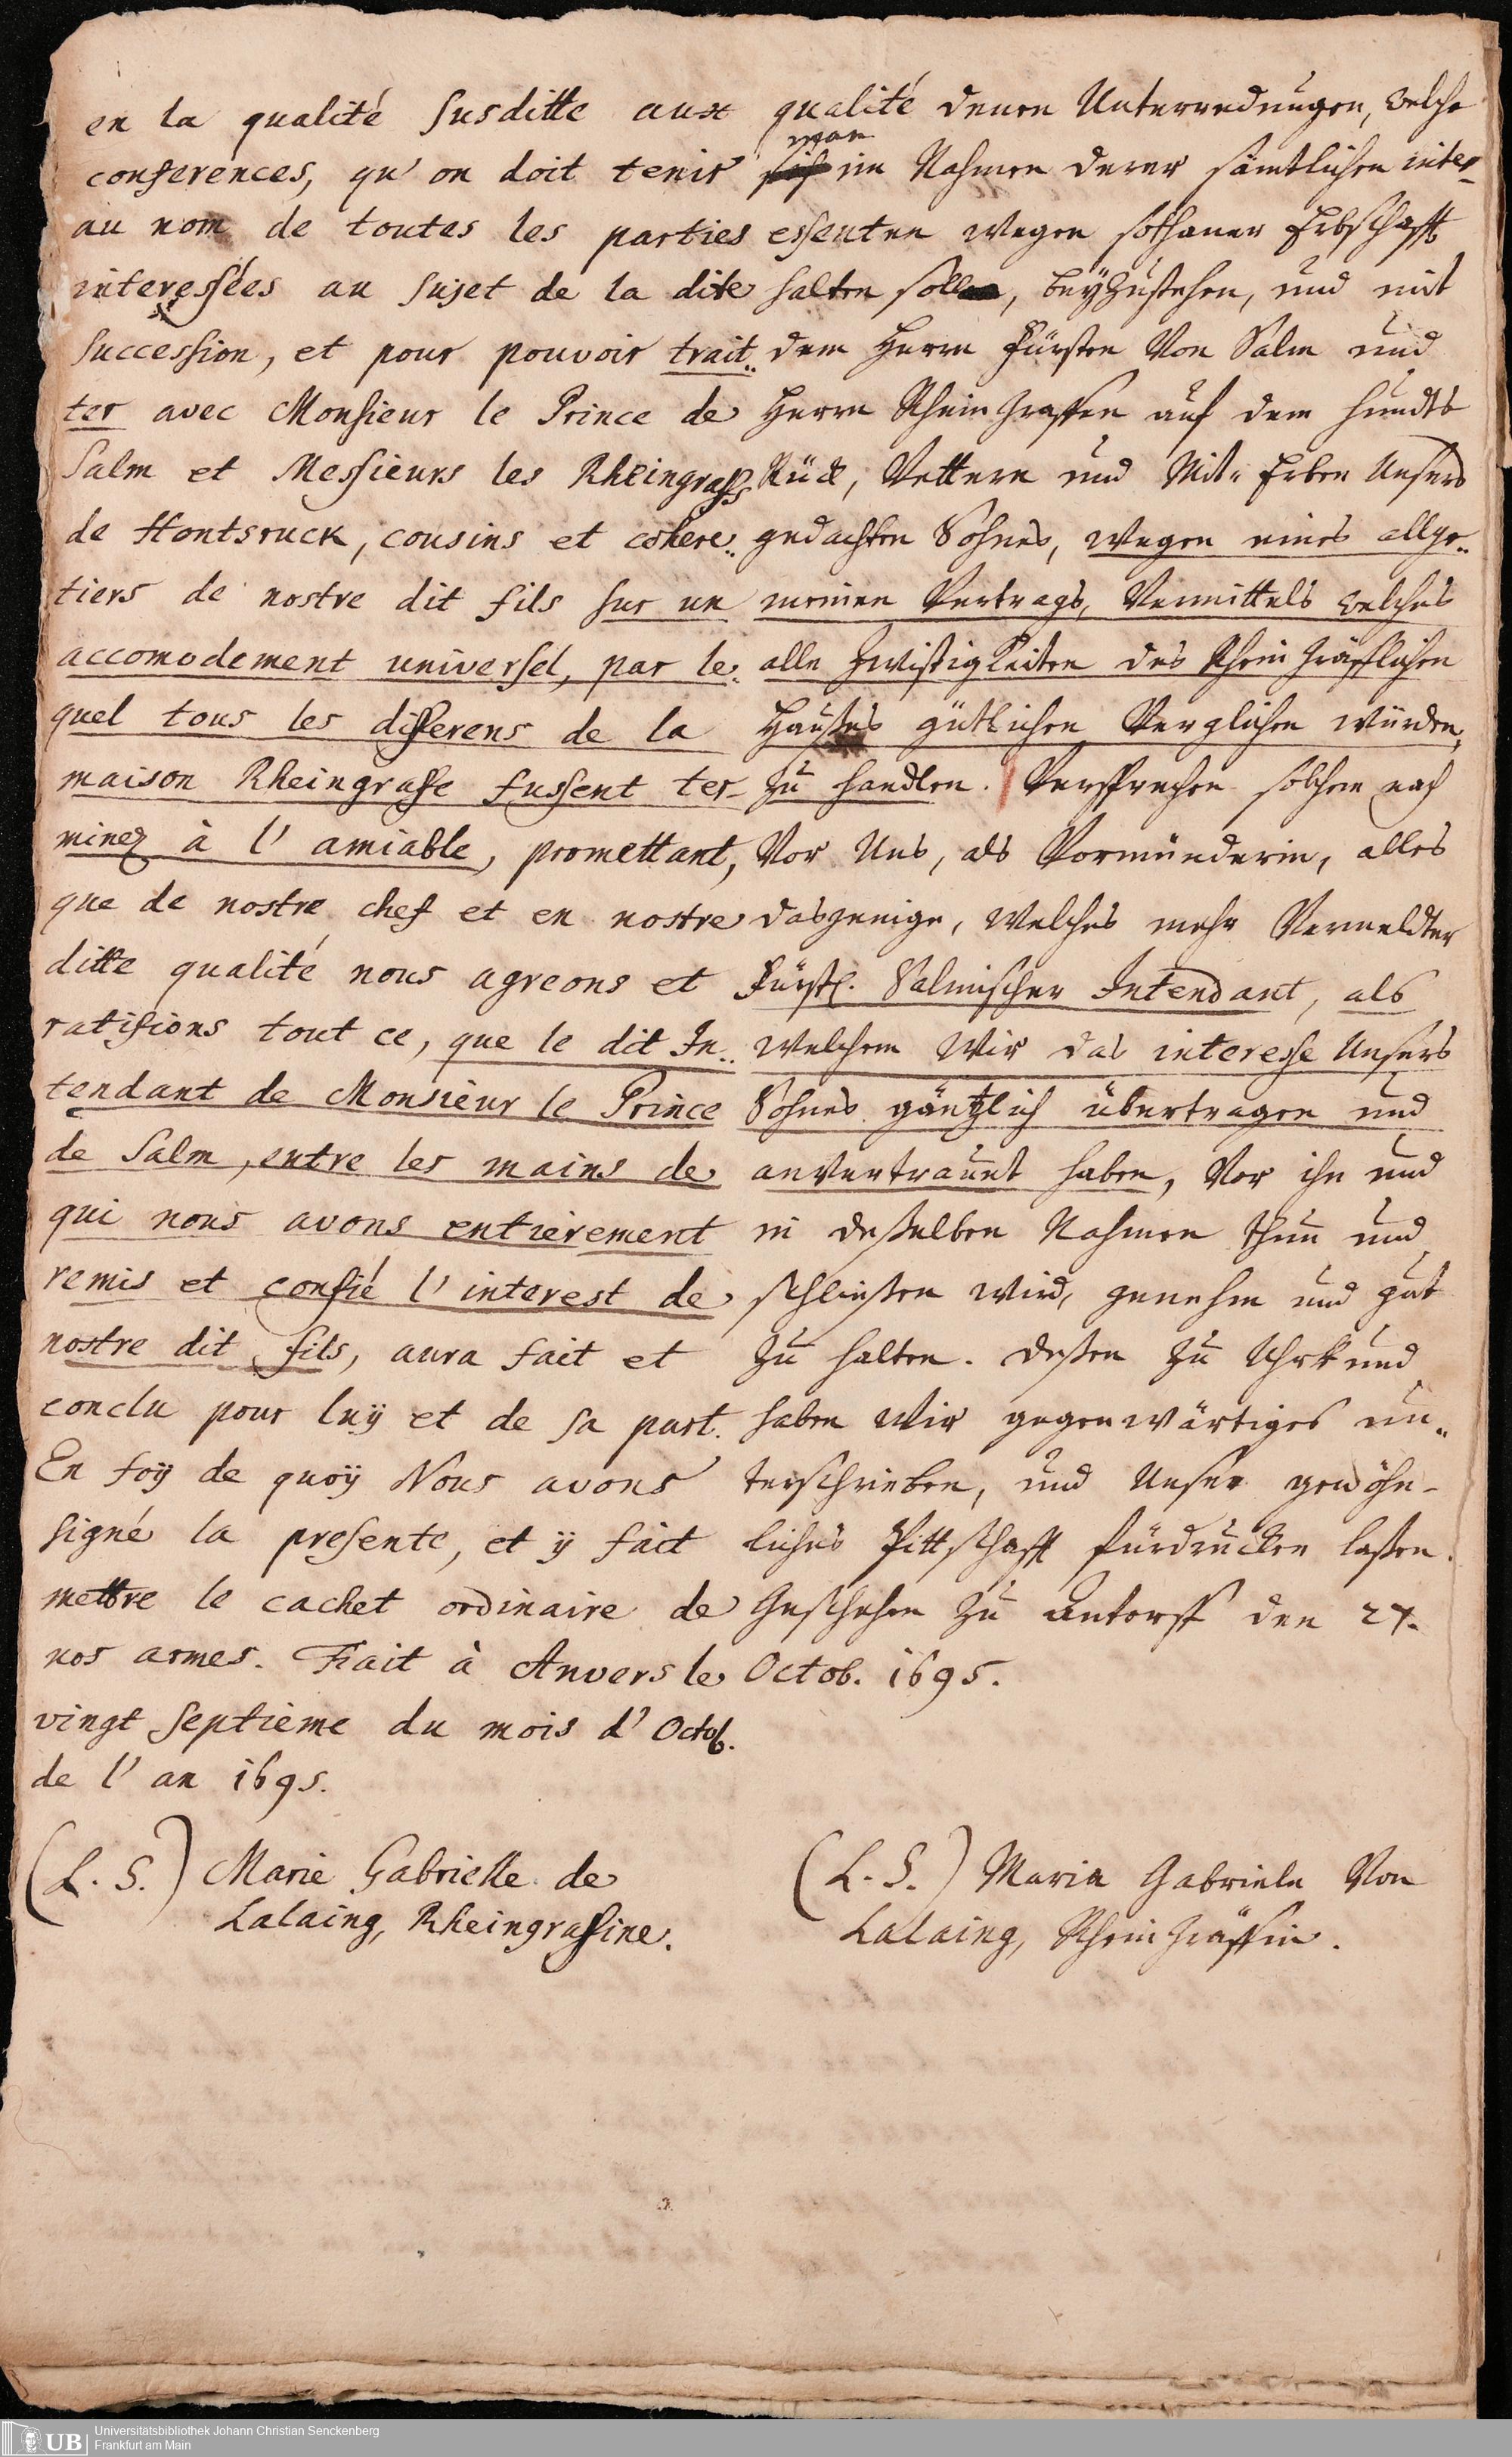 en la qualité susditte aux
conferences, qu'on doit tenir
au nom de toutes les parties
interessées au sujet de la dite
succession, et pour pouvoir trait..
ter avec Monsieur le Prince de
Salm et Messieurs les Rheingraffs
de Hontsruck, cousins et cohere..
tiers de nostre dit fils sur un
accomodement universel, par le..
quel tous les differens de la
maison Rheingraffe fussent ter-
minez à l'amiable, promettant,
que de nostre chef et en nostre
ditte qualité nous agreons et
ratifions tout ce, que le dit In..
tendant de Monsieur le Prince
de Salm, entre les mains de
qui nous avons entièrement
remis et confié l'interest de
nostre dit fils, aura fait et
conclu pour luÿ et de sa part.
En foÿ de quoÿ Nous avons
signé la presente, et ÿ fait
mettre le cachet ordinaire de
nos armes. Fait à Anvers le
vingt septieme du mois d'Octob.
de l'an 1695.
(L. S.) Marie Gabrielle de
Lalaing, Rheingraffine.
qualité denen Unterredungen, welche
man
sich im Nahmen derer sämtlichen inter-
essenten wegen sothaner Erbschafft
halten soll, beÿzustehen, und mit
dem Herrn Fürsten Von Salm und
Herrn RheinGraffen auf dem Hunds
Rück, Vettern und Mit-Erben Unsers
gedachten Sohnes, wegen eines allge..
meinen Vertrags, Vermittels welches
alle Zwistigkeiten des RheinGräfflichen
Haußes gütlichen Verglichen würden,
zu handlen. Versprechen solchem nach
Vor Uns, als Vormünderin, alles
dasjenige, welches mehr Vermeldter
Fürstl. Salmischer Intendant, als
welchem Wir das interesse Unsers
Sohnes gäntzlich übertragen und
anvertrauet haben, Vor ihn und
in deßelben Nahmen thun und
schließen wird, genehm und gut
zu halten. Deßen zu Uhrkund
haben Wir gegenwärtiges un..
terschrieben, und Unser gewöhn-
liches Pittschafft fürdrucken laßen.
Geschehen zu Antorff den 27.
Octob. 1695.
(L. S.) Maria Gabriele Von
Lalaing, RheinGräffin.
UB
Universitätsbibliothek Johann Christian Senckenberg
Frankfurt am Main